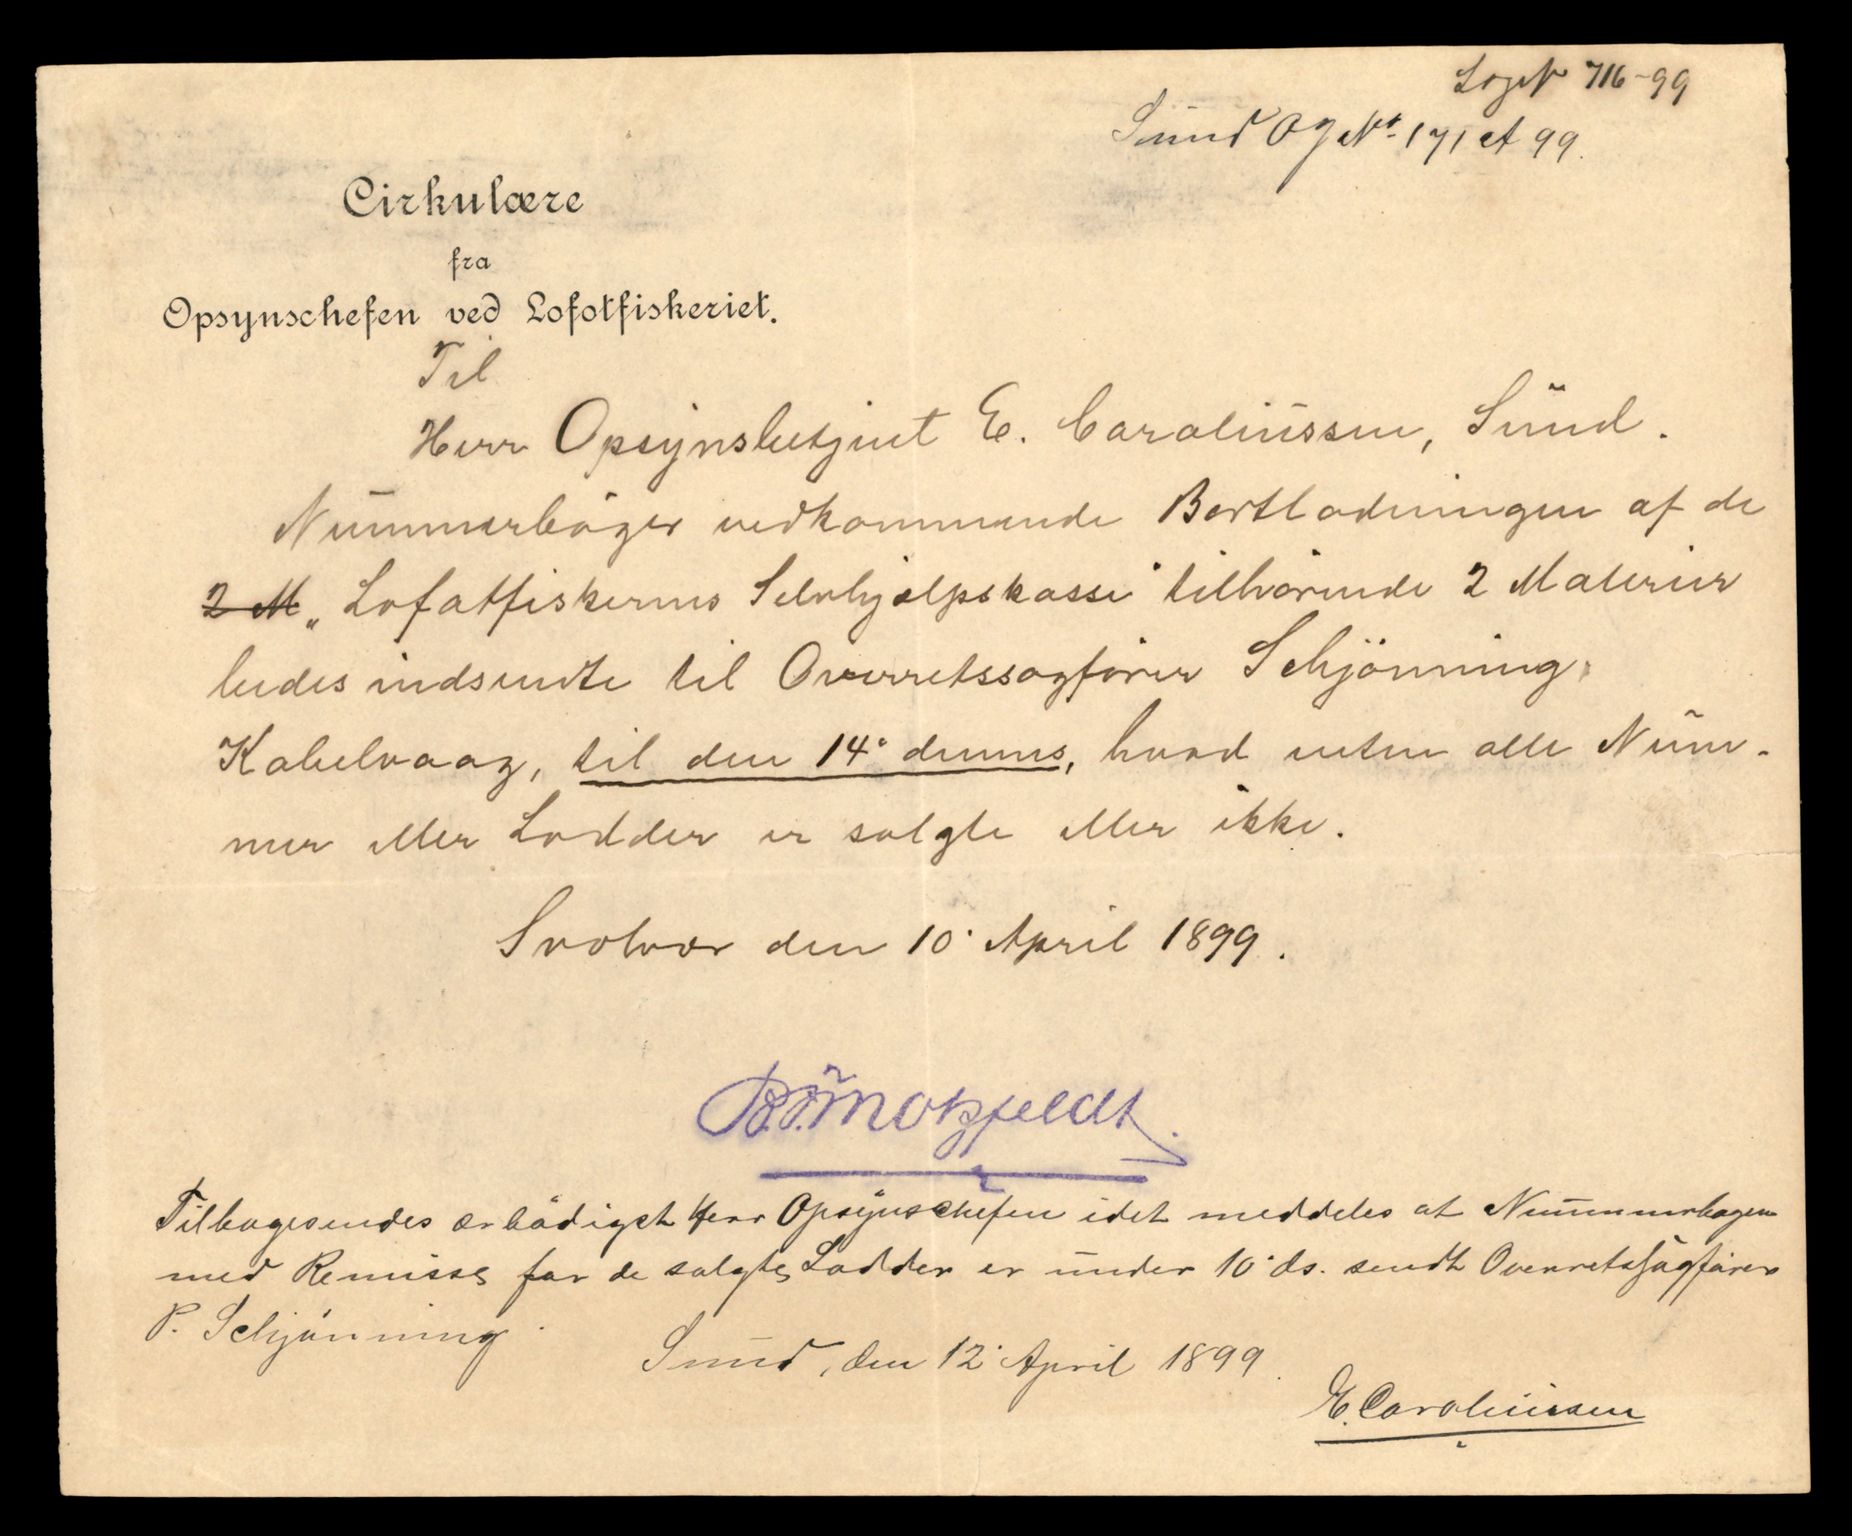 LogN 716-99
Sund OgNo 171 A 99.
Cirkulære
fra
Opsynschefen ved Lofotfiskeriet.
Til
Herr Opsynsbetjent E. Caroliussen, Sund.
Nummerböger vedkommende Bortlodningen af de
2 M „Lofotfiskernes Selvhjælpskasse" tilhörende 2 Malerier
bedes indsendte til Overretssagförer Schjönning,
Kabelvaag, til den 14de dennes, hvad enten alle Num-
mer eller Lodder er solgte eller ikke.
Svolvær den 10. April 1899.
Motzfeldt.
Tilbagesendes ærbödigst Herr Opsynschefen idet meddeles at Nummerbogen
med Remisse for de solgte Lodder er under 10. ds. sendt Overretssagförer
P. Schjönning.
Sund, den 12. April 1899.
E. Caroliussen